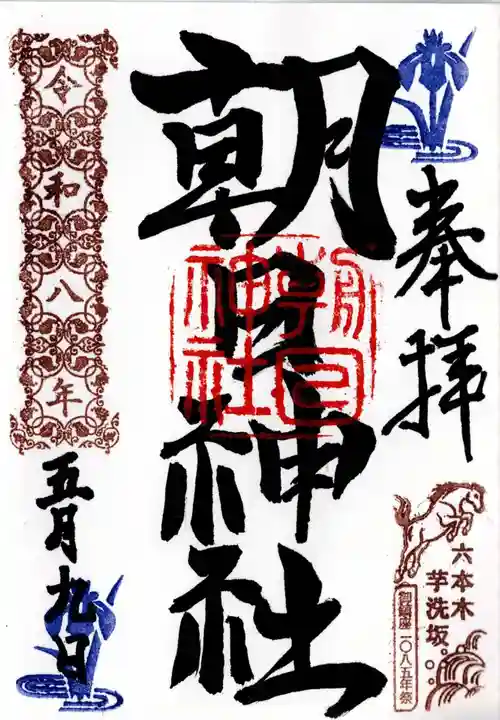 奉拝
六本木
芋洗坂
御鎮座一〇八五年祭
朝日神社
朝日神社
令和八年
五月九日